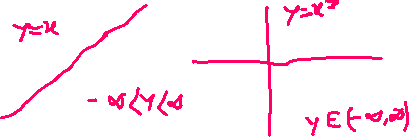 Y=x
-∞<Y<∞
Y=x³
y E(-∞,∞)